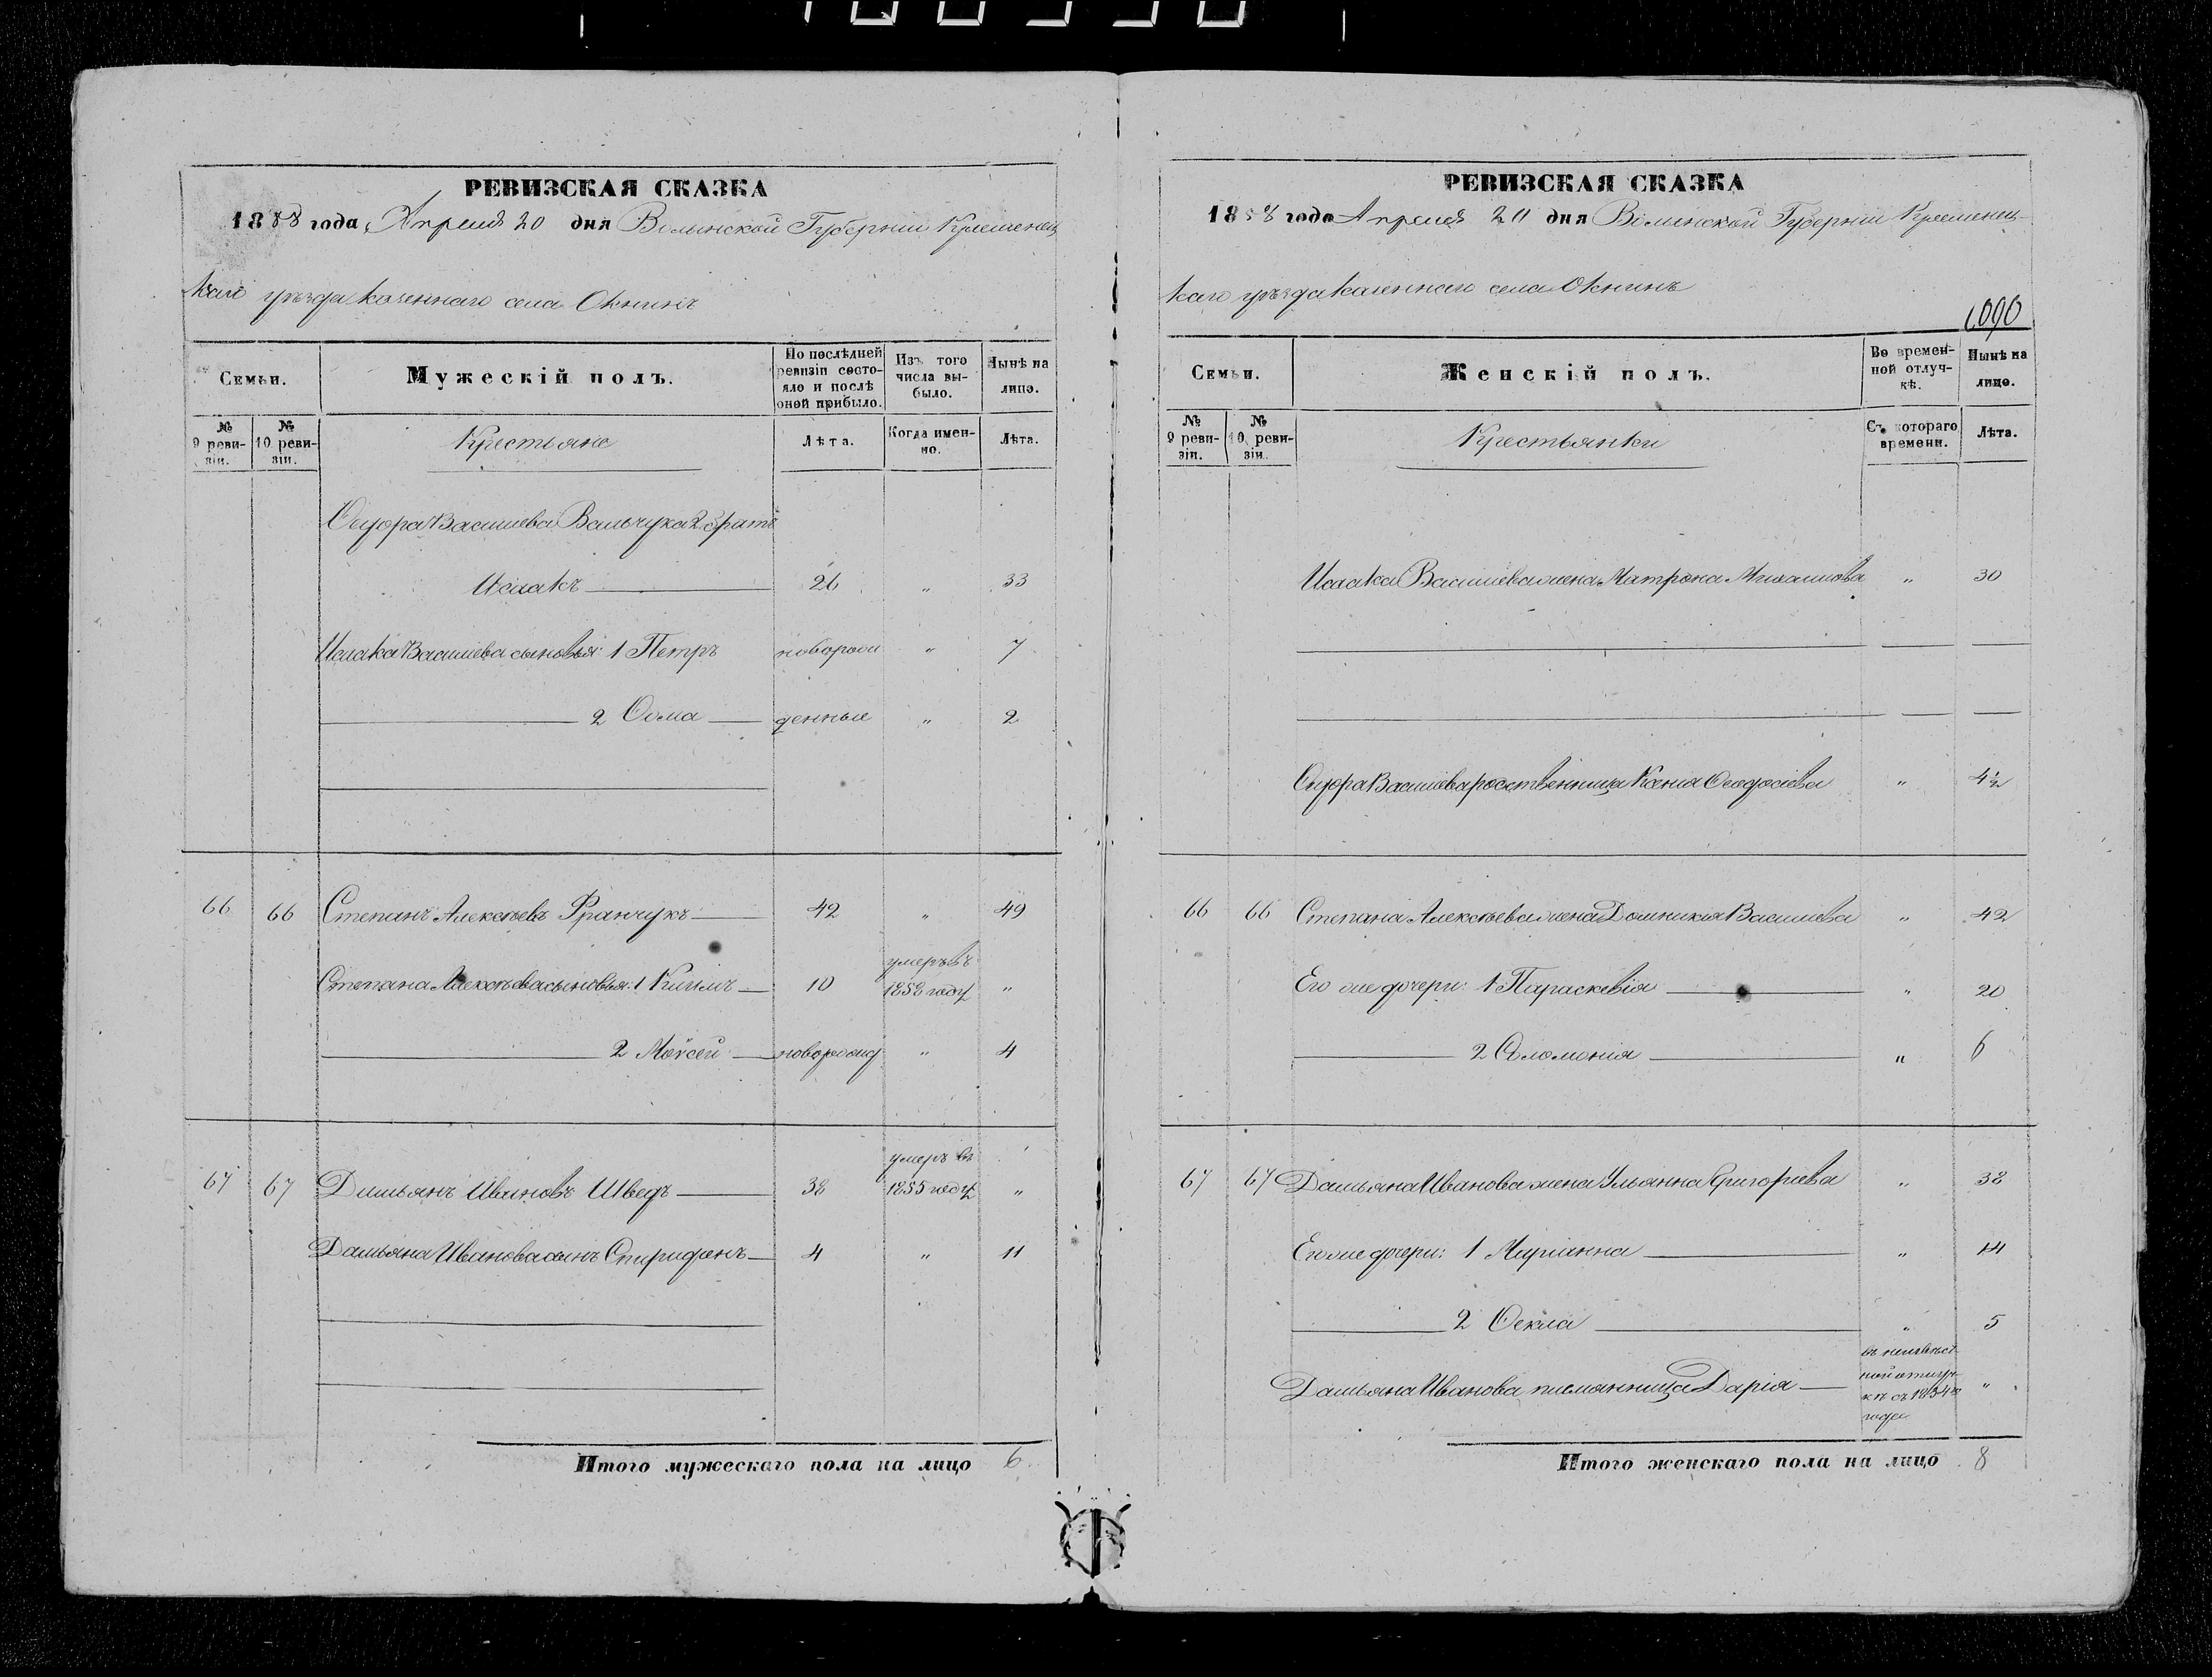 РЕВИЗСКАЯ СКАЗКА
1858 года Апреля 20 дня Волынской Губернии Кременец
каго уѣзда казеннаго села Окнинъ
Семьи.
Мужескій полъ.
По послѣдней ревизіи состояло и послѣ оной прибыло.
Изъ того числа выбыло.
Нынѣ на лицо.
№ 9 ревизіи.
№ 10 ревизіи.
Крестьяне
Лѣта.
Когда именно.
Лѣта.
Ѳедора Васильева Вальчука 2 братъ
Исаакъ 26 " 33
Исаака Васильева сыновья: 1 Петръ новорож " 7
2 Ѳома денные " 2
66 66 Степанъ Алексѣевъ Франчукъ 42 " 49
Степана Алексѣева сыновья: 1 10 умеръ въ 1858 году "
2 Моѵсей новорожд " 4
67 67 Дамьянъ Ивановъ Шведъ 38 умеръ въ 1855 году "
Дамьяна Иванова сынъ Спиридонъ 4 " 11
Итого мужескаго пола на лицо 6
РЕВИЗСКАЯ СКАЗКА
1858 года Апреля 20 дня Волынской Губерніи Кременец-
каго уѣзда казеннаго села Окнинъ
1090
Семьи.
Женскій полъ.
Во временной отлучкѣ.
Нынѣ на лицо.
№ 9 ревизіи.
№ 10 ревизіи.
Крестьянки
Съ котораго времени.
Лѣта.
Исаака Васильева жена Матрона Михаилова " 30
Ѳедора Васильева родственница Ксенія Ѳеодосіева " 4½
66 66 Степана Алексѣева жена Домникія Васильева " 42
Его же дочери: 1 Параскевія " 20
2 Соломонія " 6
67 67 Дамьяна Иванова жена Ульянна Григорьева " 38
Его же дочери: 1 Маріанна " 14
2 Ѳекла " 5
Дамьяна Иванова племянница Дарія въ неизвѣст
ной отлуч-
кѣ съ 1854
года "
Итого женскаго пола на лицо 8